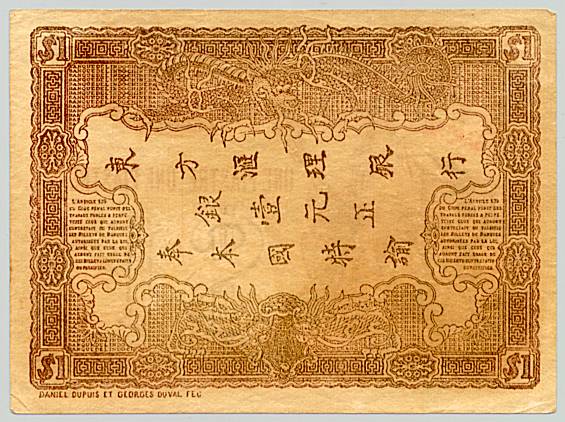 $1
$1
東方滙理銀行
銀壹元正
奉本國特諭
L'ARTICLE 139
DU CODE PENAL PUNIT DES
TRAVAUX FORCES A PERPE-
TUITE CEUX QUI AURONT
CONTREFAIT OU FALSIFIE
LES BILLETS DE BANQUES
AUTORISEES PAR LA LOI,
AINSI QUE CEUX QUI
AURONT FAIT USAGE DE
CES BILLETS CONTREFAITS
OU FALSIFIES.
L'ARTICLE 139
DU CODE PENAL PUNIT DES
TRAVAUX FORCES A PERPE-
TUITE CEUX QUI AURONT
CONTREFAIT OU FALSIFIE
LES BILLETS DE BANQUES
AUTORISEES PAR LA LOI,
AINSI QUE CEUX QUI
AURONT FAIT USAGE DE
CES BILLETS CONTREFAITS
OU FALSIFIES.
$1
$1
DANIEL DUPUIS ET GEORGES DUVAL FEC